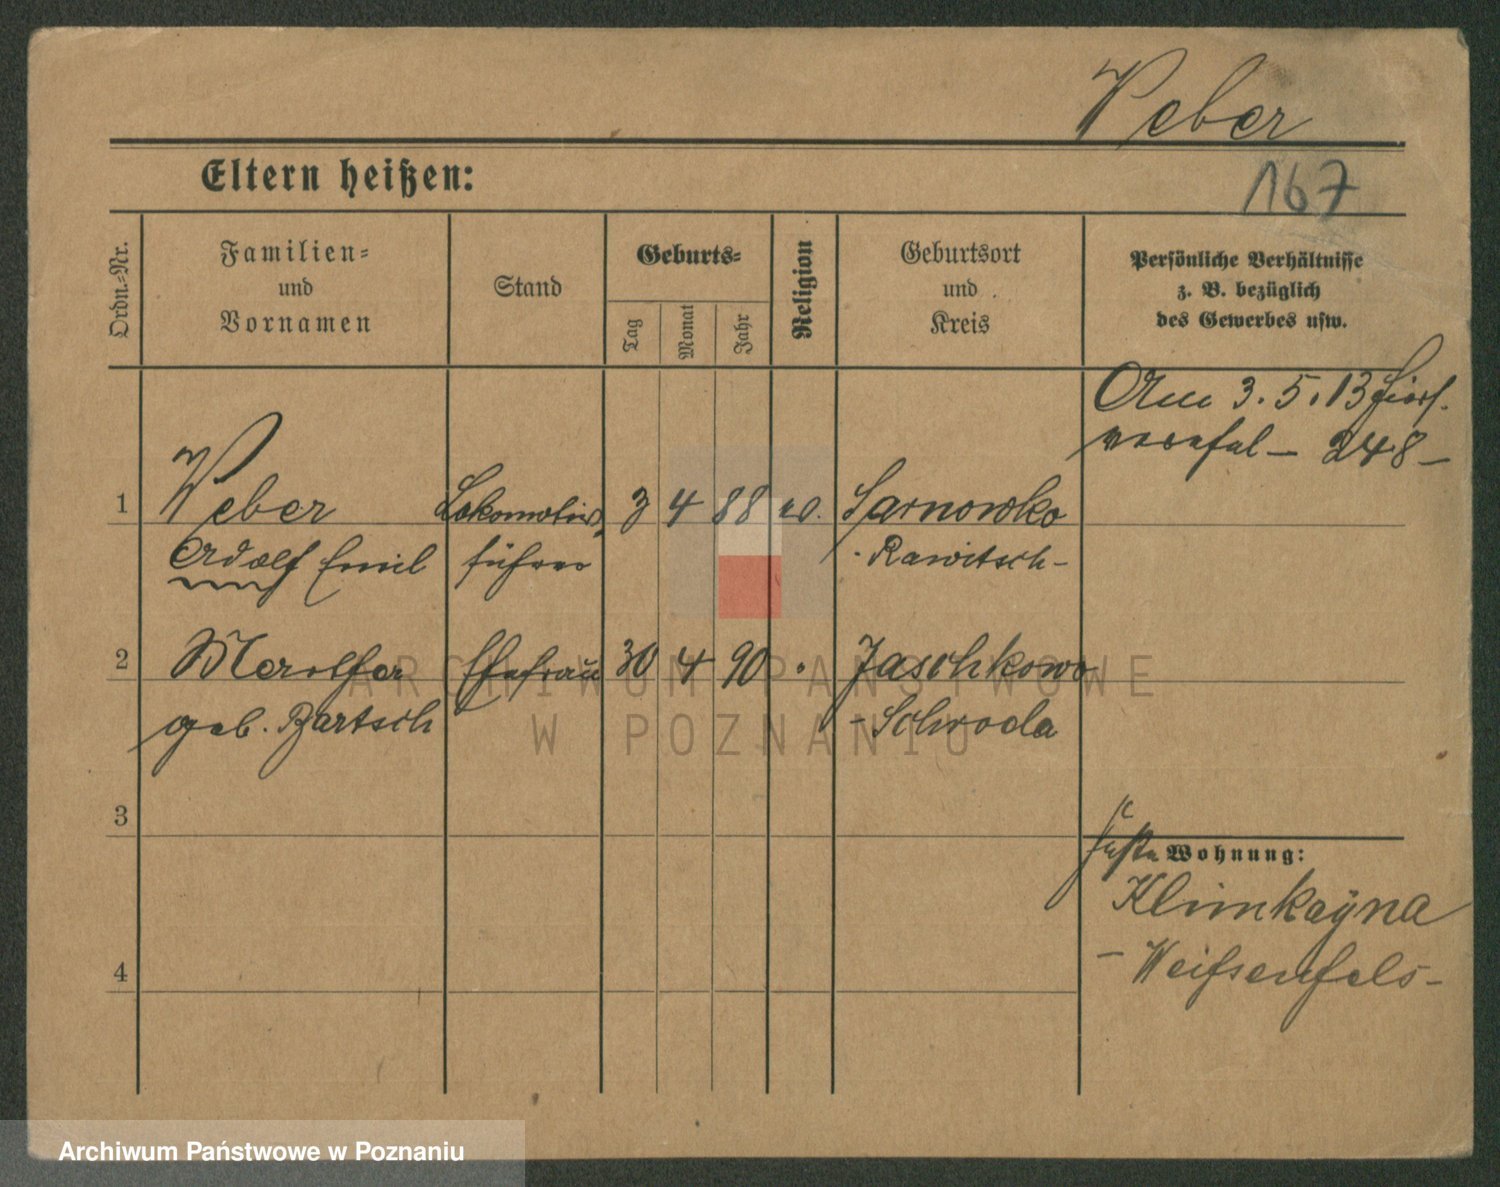 Weber
Eltern heißen:
167
Ordn.-Nr.
Familien-
und
Vornamen
Stand
Geburts-
Tag
Monat
Jahr
Religion
Geburtsort
und
Kreis
Persönliche Verhältnisse
z. B. bezüglich
des Gewerbes usw.
Am 3. 5. 13
248
1 Weber Lokomotiv 3 4 88 Sarnowko
Adolf Emil führer - Rawitsch -
2 Ehefrau 30 4 90 Jaschkowo
geb. Bartsch - Schroda
3
Wohnung:
Klimkayna
4
- Weißenfels -
ARCHIWUM PAŃSTWOWE
W POZNANIU
Archiwum Państwowe w Poznaniu